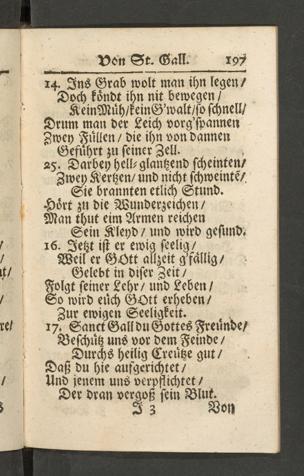 Von St. Gall. 197
14. Ins Grab wolt man ihn legen/
Doch köndt ihn nit bewegen/
Kein Müh/kein G'walt/so schnell/
Drum man der Leich vorg'spannen
Zwey Füllen/ die ihn von dannen
Geführt zu seiner Zell.
25. Darbey hell-glantzend scheinten/
Zwey Kertzen/ und nicht schweintē/
Sie brannten etlich Stund.
Hört zu die Wunderzeichen/
Man thut eim Armen reichen
Sein Kleyd/ und wird gesund.
16. Jetzt ist er ewig seelig/
Weil er GOtt allzeit g'fällig/
Gelebt in diser Zeit/
Folgt seiner Lehr/ und Leben/
So wird eüch GOtt erheben/
Zur ewigen Seeligkeit.
17. Sanct Gall du Gottes Freünde/
Beschütz uns vor dem Feinde/
Durchs heilig Creütze gut/
Daß du hie aufgerichtet/
Und jenem uns verpflichtet/
Der dran vergoß sein Blut.
J 3 Von